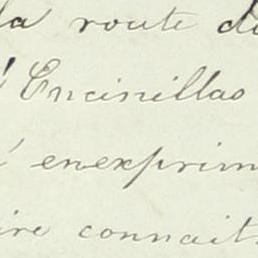 la route de
d'Encinillas
d'enexprim
ire connait